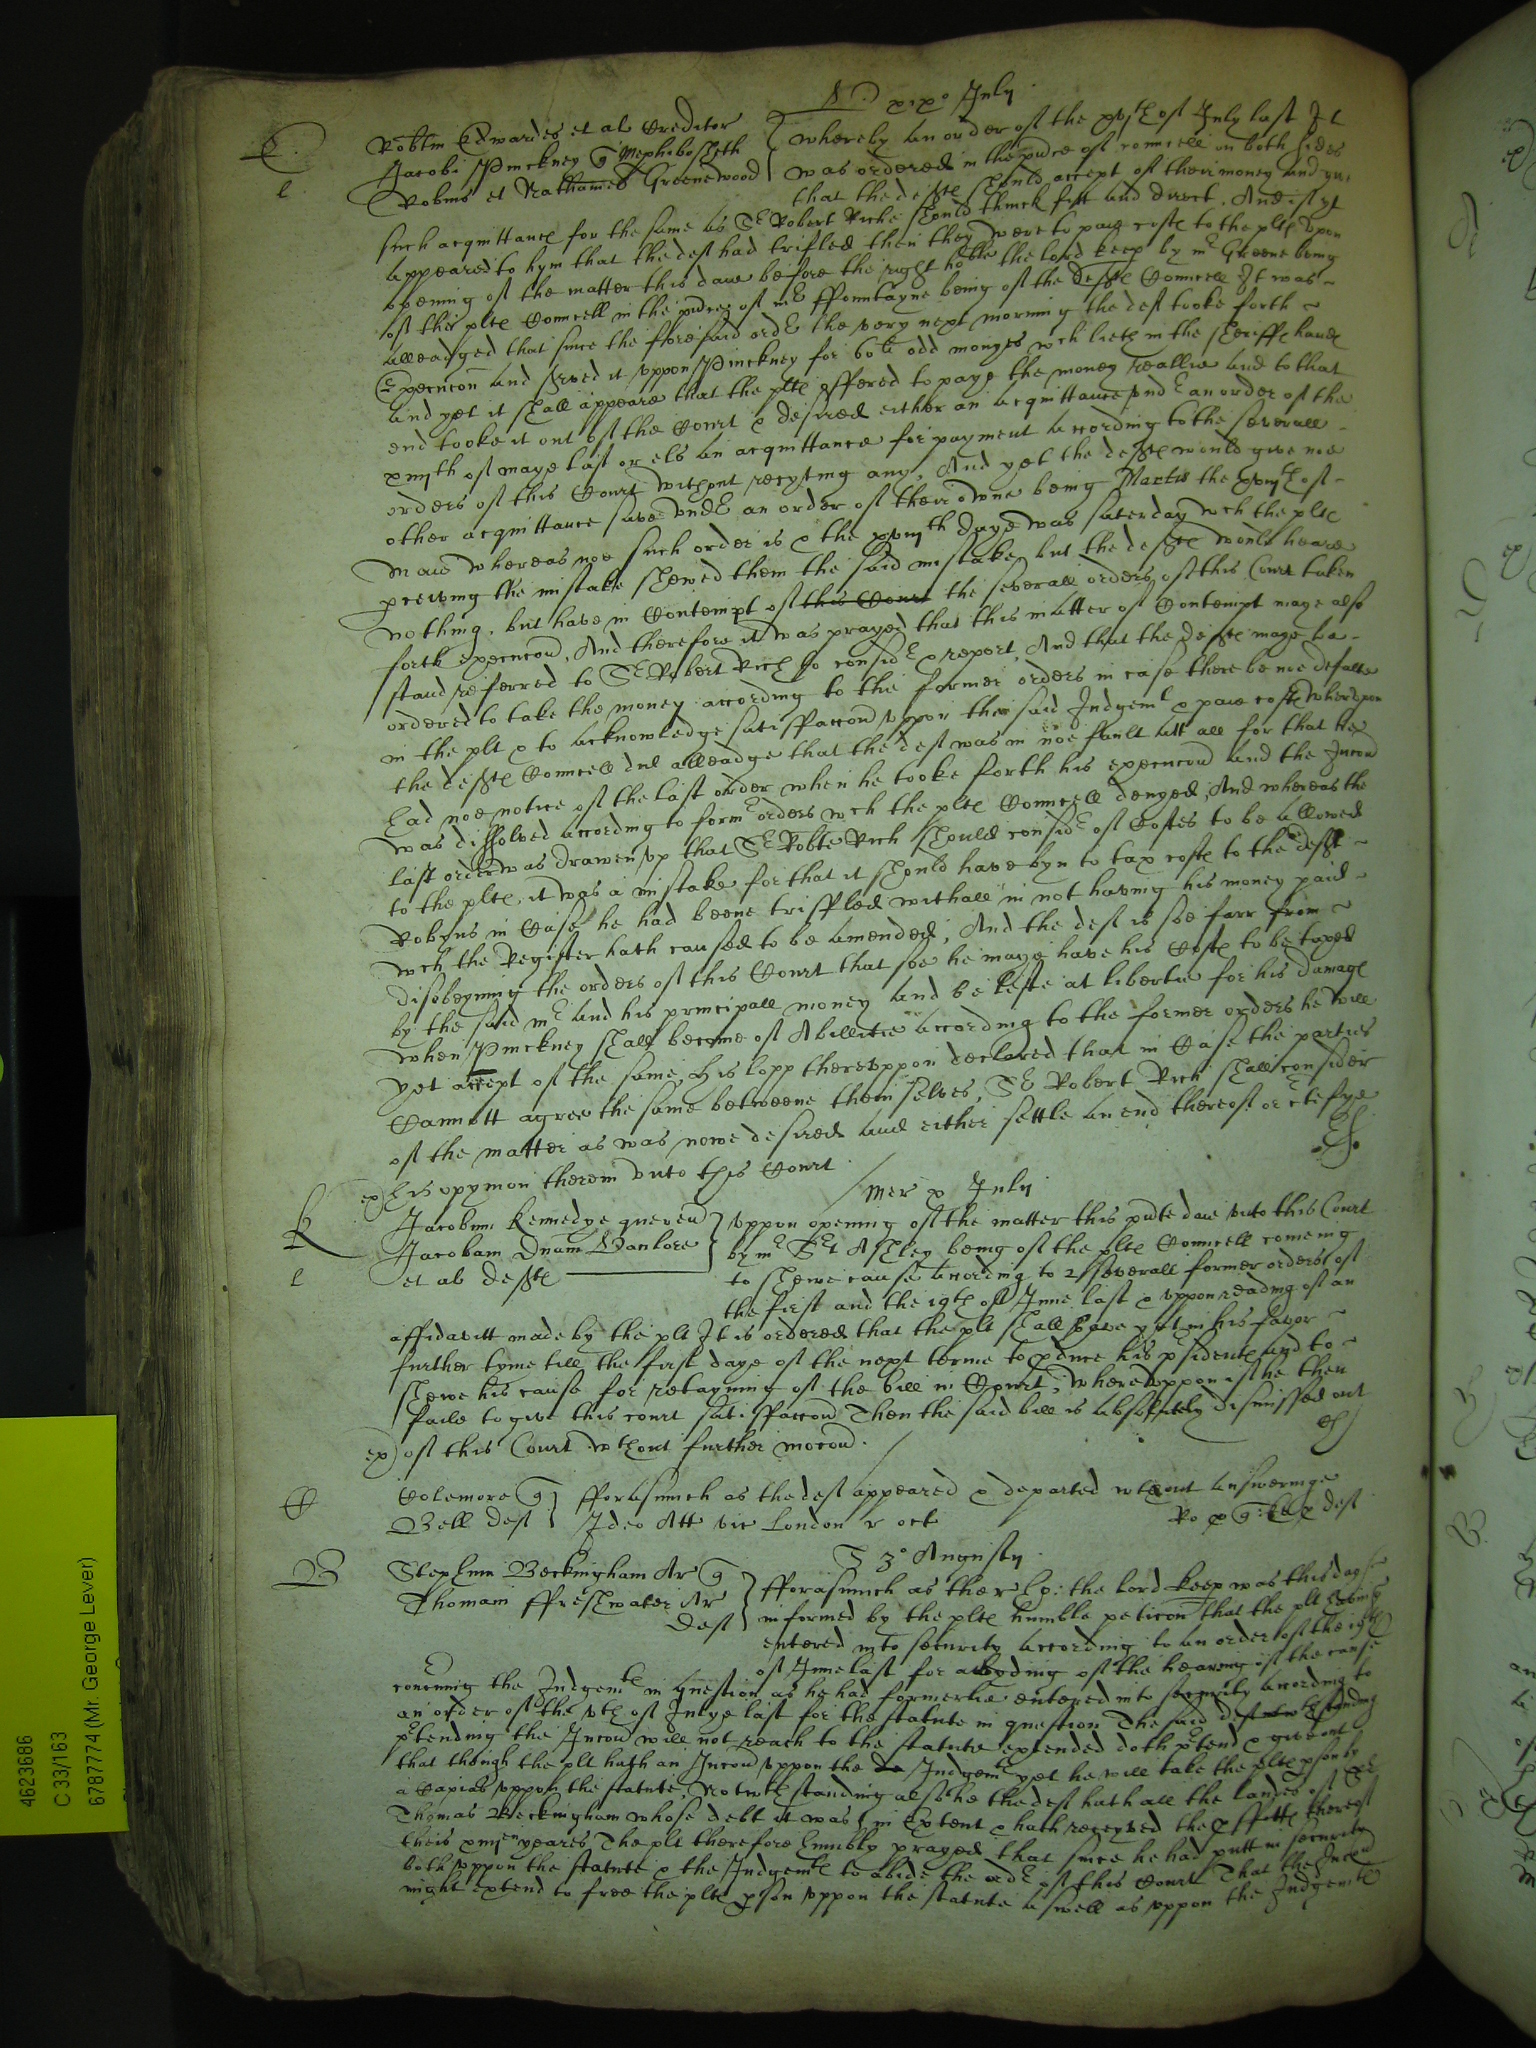 S xxx° July
E
Robtm Edwardes et al Creditor
Jacobi Pinckney q Mephibosheth
l Robins et Nathaniel Greenewood
Whereby an order of the xxvjth of July last It
was ordered in the pnce of councell on both sides
that the deftes should accept of their money and give
such acquittance for the same as Sr Robert Riche should thinck fitt and direct. And if yt
appeared to hym that the def had trifled then they were to paie costes to the pltes Upon
opening of the matter this daie before the right hoble the lord keep by mr Greene being
of the pltes Councell in the pnce of mr ffountayne being of the deftes Councell It was
alleadged that since the foresaid order the very next morning the def tooke forth
Execucon and served it uppon Pinckney for 60li odd monyes wch lieth in the Sheriffes handes
and yet it shall appeare that the pltes offered to paye the money reallie and to that
end tooke it out of the Court & desired either an acquittance undr an order of the
xviijth of maye last or els an acquittance for payment according to the severall
orders of this Court without recyting any, And yet the deftes would give noe
other acquittance save undr an order of their owne being Martis the xviijth of
Maie whereas noe such order is & the xviijth daye was saterday wch the pltes
pceiving the mistake shewed them the said mistake, but the deftes would heare
nothing, but have in Contempt of this Court the severall orders of this Court taken
forth execucon, And therefore it was prayed that this matter of Contempt maye also
stand referred to Sr Robert Rich to considr & report, And that the deftes maye be
ordered to take the money according to the former orders in case there be noe defalte
in the plt & to acknowledge satisfaccon uppon the said Judgemt & paie costes Whereupon
the deftes Councell did alleadge that the def was in noe fault att all for that he
had noe notice of the last order when he tooke forth his execucon and the Iniuncon
was dissolved according to formr orders wch the pltes Councell denyed, And whereas the
last order was drawen up that Sr Robte Rich should considr of Costes to be allowed
to the pltes, it was a mistake for that it should have byn to tax costes to the deft
Robyns in Case he had beene triffled withall in not having his money paid
wch the Register hath caused to be amended, And the def is soe farr from
disobeyinng the orders of this Court that soe he maye have his Costes to be taxed
by the said mr and his principall money and be lefte at libertie for his damages
when Pinckney shall become of Abillitie according to the former orders he will
yet accept of the same, His lopp thereuppon declared that in Case the parties
Cannott agree the same betweene them selves, Sr Robert Rich shall consider
of the matter as was nowe desired and either settle an end thereof or ctefye
ex his opynion therein unto this Court
Mer x July
K
Jacobum Kennedye quereñ
Jacobam Dnam Vanlore
l et al deftes
Uppon opening of the matter this pnte daie unto this Court
by mr Srt Ashley being of the pltes Councell coming
to shewe cause according to 2 severall former orders of
the first and the 19th of June last & uppon reading of an
affidavitt made by the plt It is ordered that the plt shall have yet in his favor
further tyme till the first daye of the next terme to pduce his psidentes and to
shewe his cause for retayning of the bill in Court, whereuppon if he then
faile to give this court satisfaccon Then the said bill is absolutely dismissed out
ex of this Court wthout further mocon.
C
Colemore q
Bell def
fforasmuch as the def appeared & departed wthout answeringe
Ideo Att vic London r oct
S 3° Augusti
B
Stephum Beckingham Ar q
Thomam ffreshwater Ar
def
fforasmuch as the r ho: the lord keep was this day
informed by the pltes humble peticon that the plt having
entered into security according to an order of the 19th
of June last for abyding of the hearing of the cause
concerning the Judgemtes in question as he had formerlie entered into security according to
an order of the vth of Julye last for the statute in question The said def
ptending the Iniuncon will not reach to the statute extended doth ptend & give out
that though the plt hath an Iniuncon uppon the Judgemt yet he will take the pltes pson by
a Capias uppon the statute, Notwthstanding alsoe the def hath all the landes of
Thomas Beckingham whose debt it was in Extent & hath receyved the pffittes thereof
theis xiijen yeares The plt therefore humbly prayed that since he had putt in security
both uppon the statute & the Judgemtes to abide the ordr of this Court That the Iniuncon
might extend to free the pltes pson uppon the statute aswell as uppon the Judgemte
4623686
C 33/163
6787774 (Mr. George Lever)